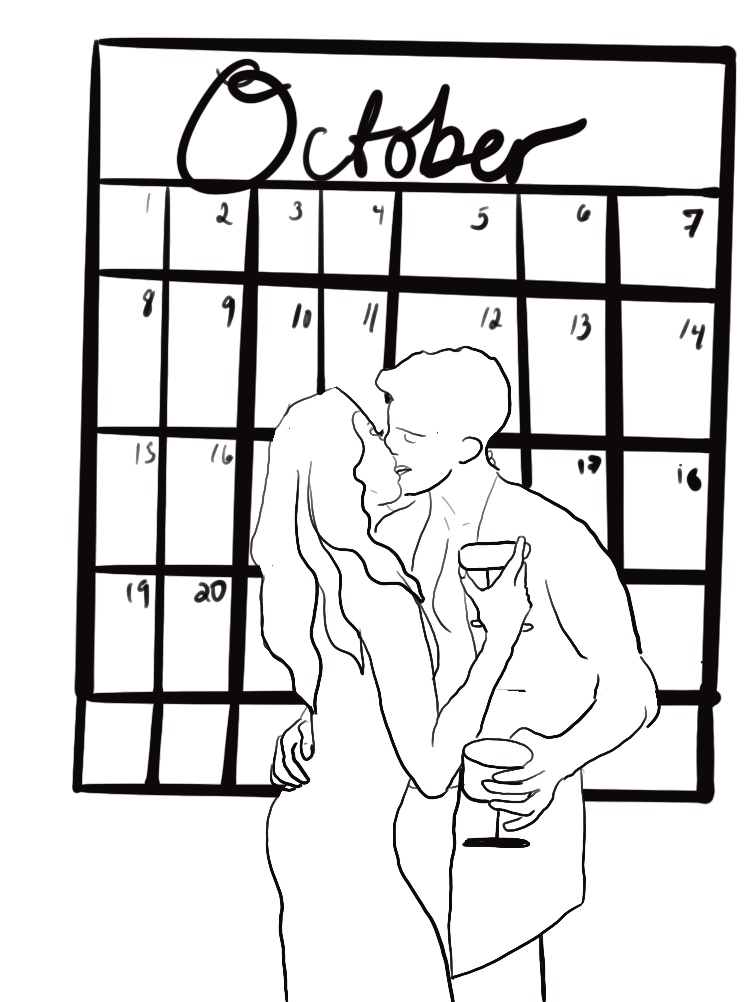 October
1 2 3 4 5 6 7
8 9 10 11 12 13 14
15 16 17 18
19 20